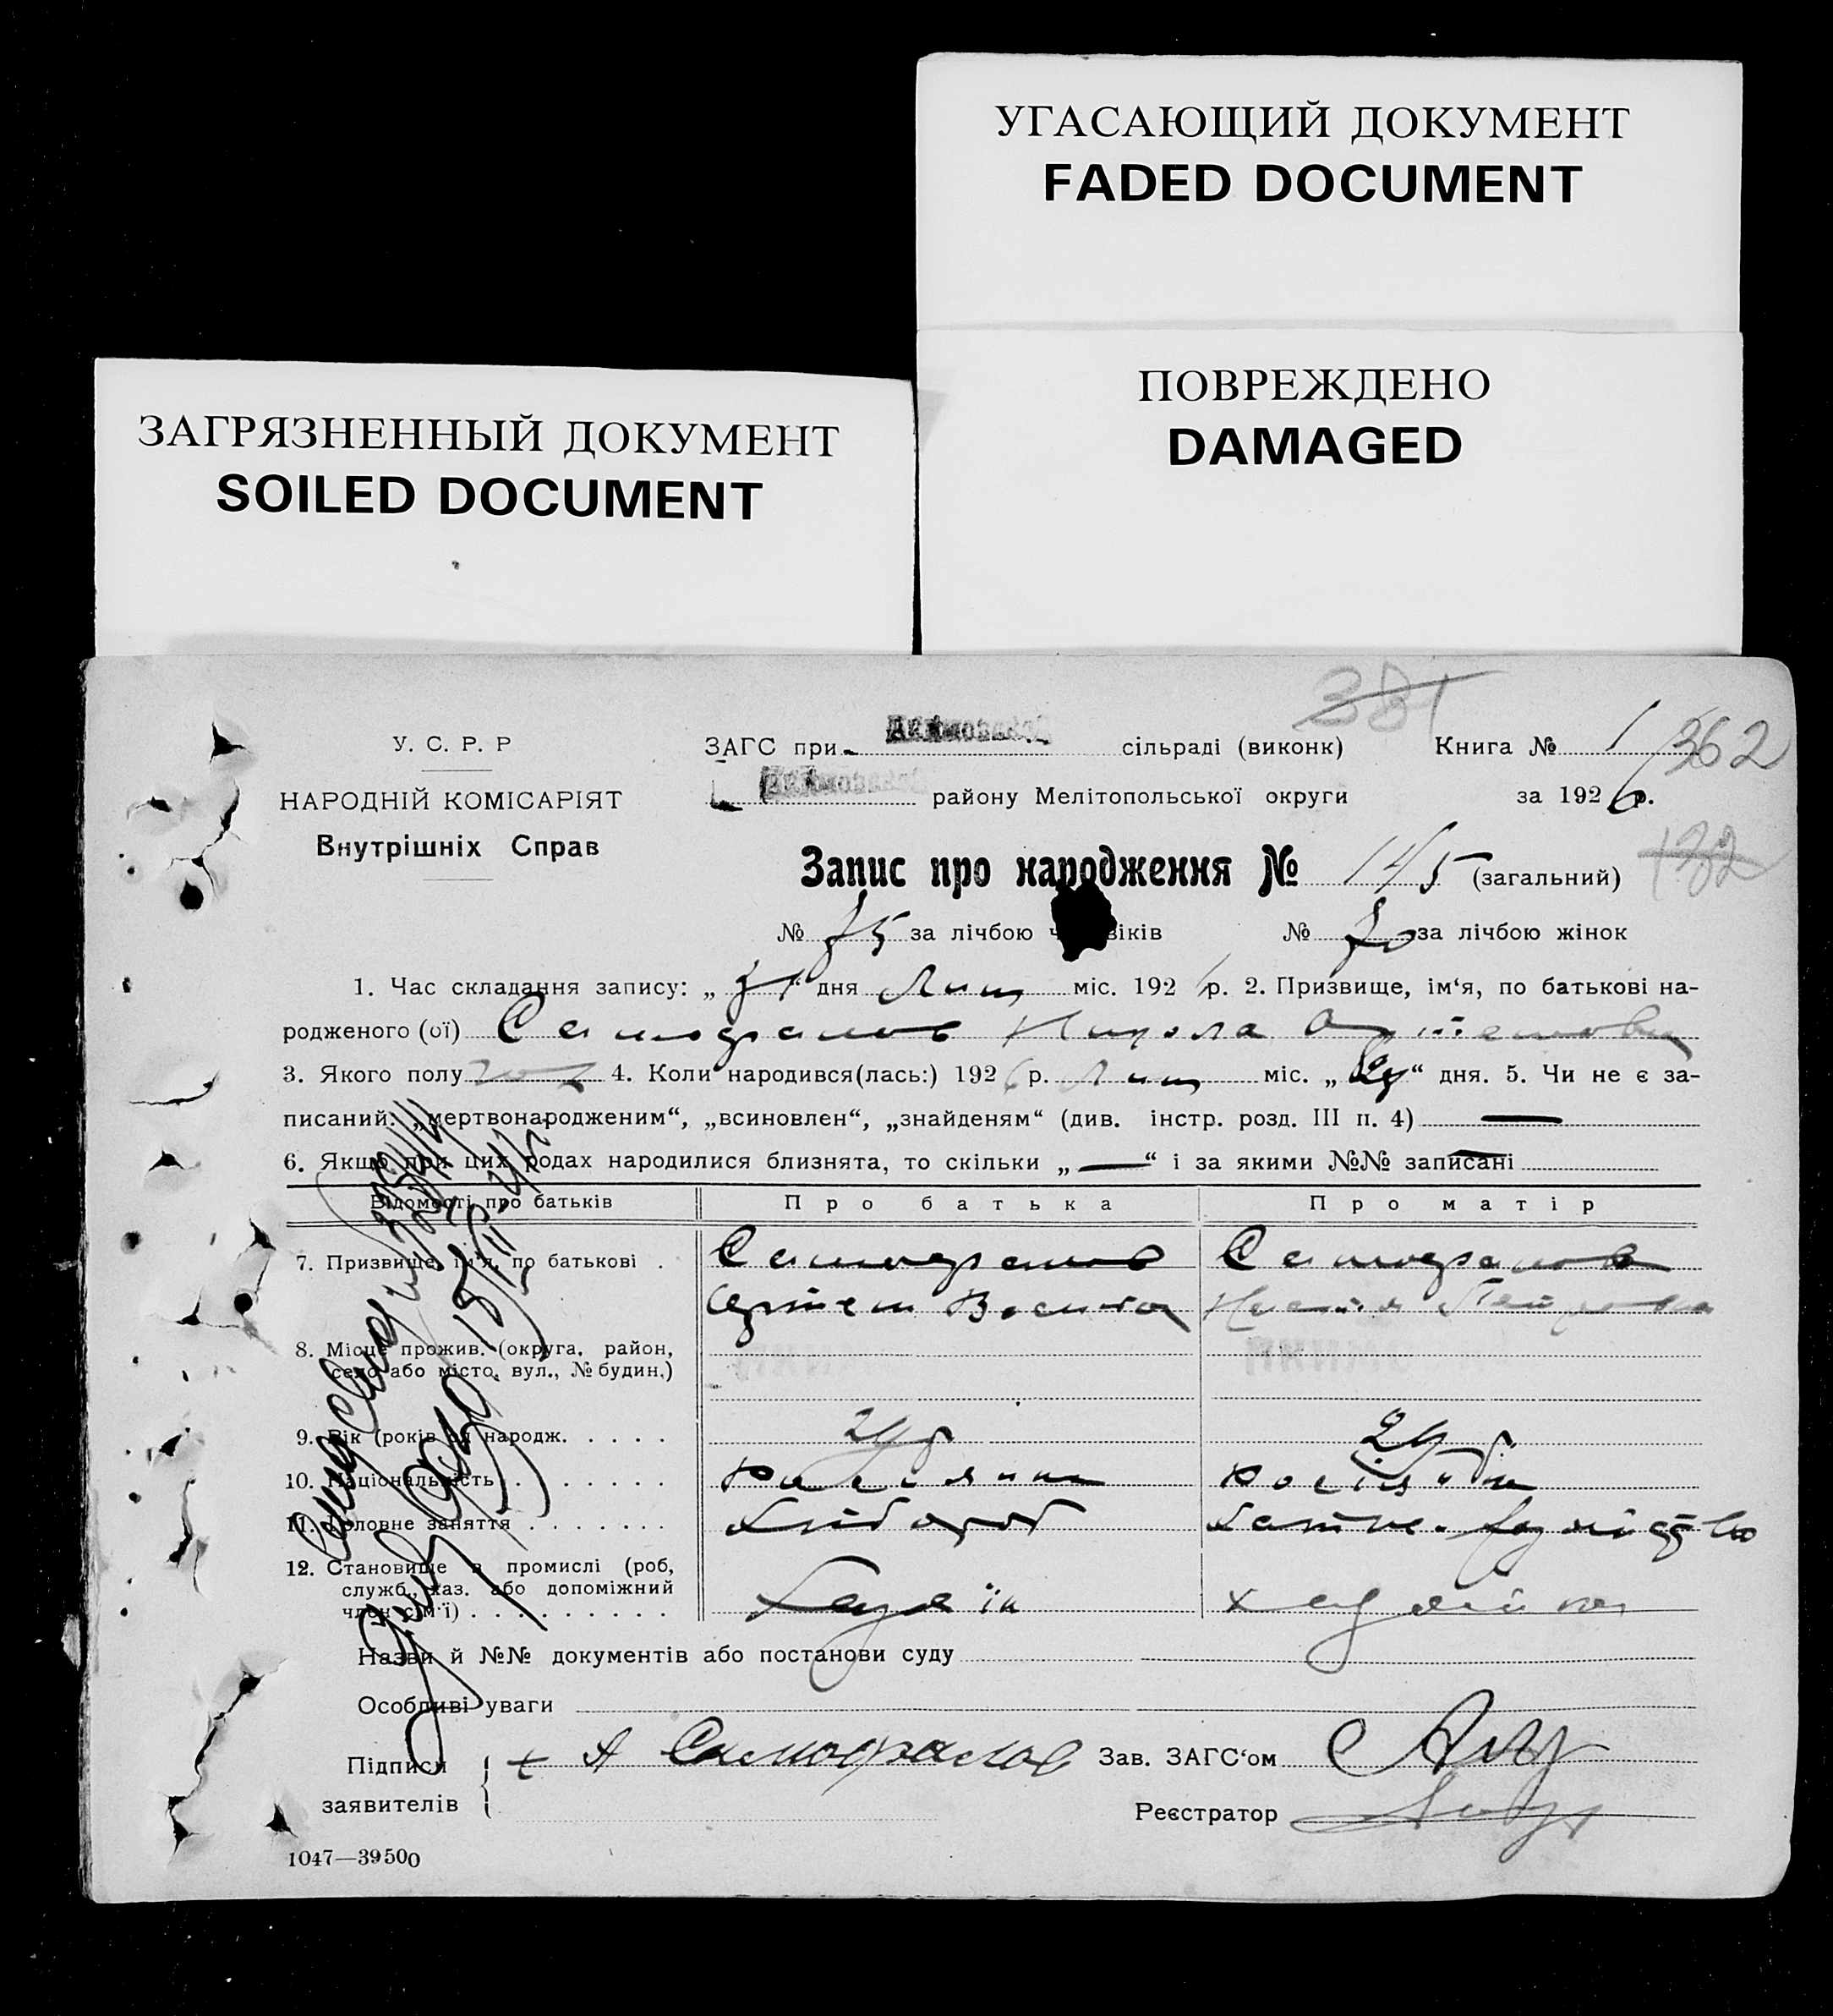 УГАСАЮЩИЙ ДОКУМЕНТ
FADED DOCUMENT
ПОВРЕЖДЕНО
DAMAGED
ЗАГРЯЗНЕННЫЙ ДОКУМЕНТ
SOILED DOCUMENT
381
У. С. Р. Р
НАРОДНІЙ КОМІСАРІЯТ
Внутрішніх Справ
ЗАГС при сільраді (виконк) Книга № 1 362
району Мелітопольської округи за 1926 р.
Запис про народження № 145 (загальний) 182
№ 75 за лічбою чоловіків № 70 за лічбою жінок
1. Час складання запису: „ “ дня Лип міс. 1926 р. 2. Призвище, ім‘я, по батькові на-
родженого (ої) Самофалов Микола Артемович
3. Якого полу 4. Коли народився(лась:) 1926 р. Лип міс. „ “ дня. 5. Чи не є за-
писаний: „мертвонародженим“, „всиновлен“, „знайденям“ (див. інстр. розд. III п. 4) —
6. Якщо при цих родах народилися близнята, то скільки „—“ і за якими №№ записані —
Відомості про батьків Про батька Про матір
7. Призвище, ім‘я, по батькові . Самофалов Самофалова
Артем Васильов Петровна
8. Місце прожив. (округа, район,
село або місто, вул., № будин.)
9. Вік (років від народж. . . . .
10. Національність . . . . . . . росіянин росіянка
11. Головне заняття . . . . . . . хлібороб
12. Становище в промислі (роб,
служб., хаз. або допоміжний
член сім‘ї) . . . . . . . . . хазяїн хазяйка
Назви й №№ документів або постанови суду
Особливі уваги
Підписи + А Самофалов Зав. ЗАГС‘ом
заявителів Реєстратор
1047—39500